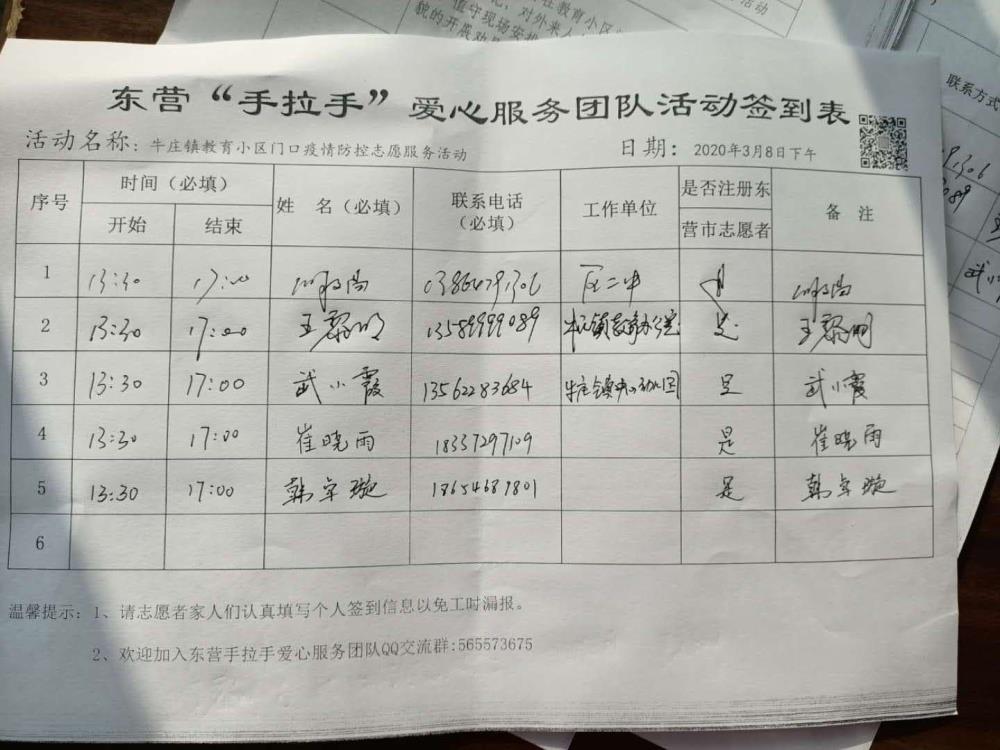 东营“手拉手”爱心服务团队活动签到表
活动名称：牛庄镇教育小区门口疫情防控志愿服务活动 日期：2020年3月8日下午
序号 时间（必填） 姓 名（必填） 联系电话（必填） 工作单位 是否注册东营市志愿者 备 注
开始 结束
1 13:30 17:00 二中
2 13:30 17:00 王黎明 13589999089 牛庄镇 是 王黎明
3 13:30 17:00 武小霞 13562283684 牛庄镇中心幼儿园 是 武小霞
4 13:30 17:00 崔晓雨 18337297109 是 崔晓雨
5 13:30 17:00 韩卓璇 18654687801 是 韩卓璇
6
温馨提示：1、请志愿者家人们认真填写个人签到信息以免工时漏报。
2、欢迎加入东营手拉手爱心服务团队QQ交流群:565573675
联系方式